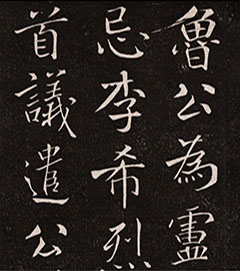 魯公為盧
忌李希烈
首議遣公